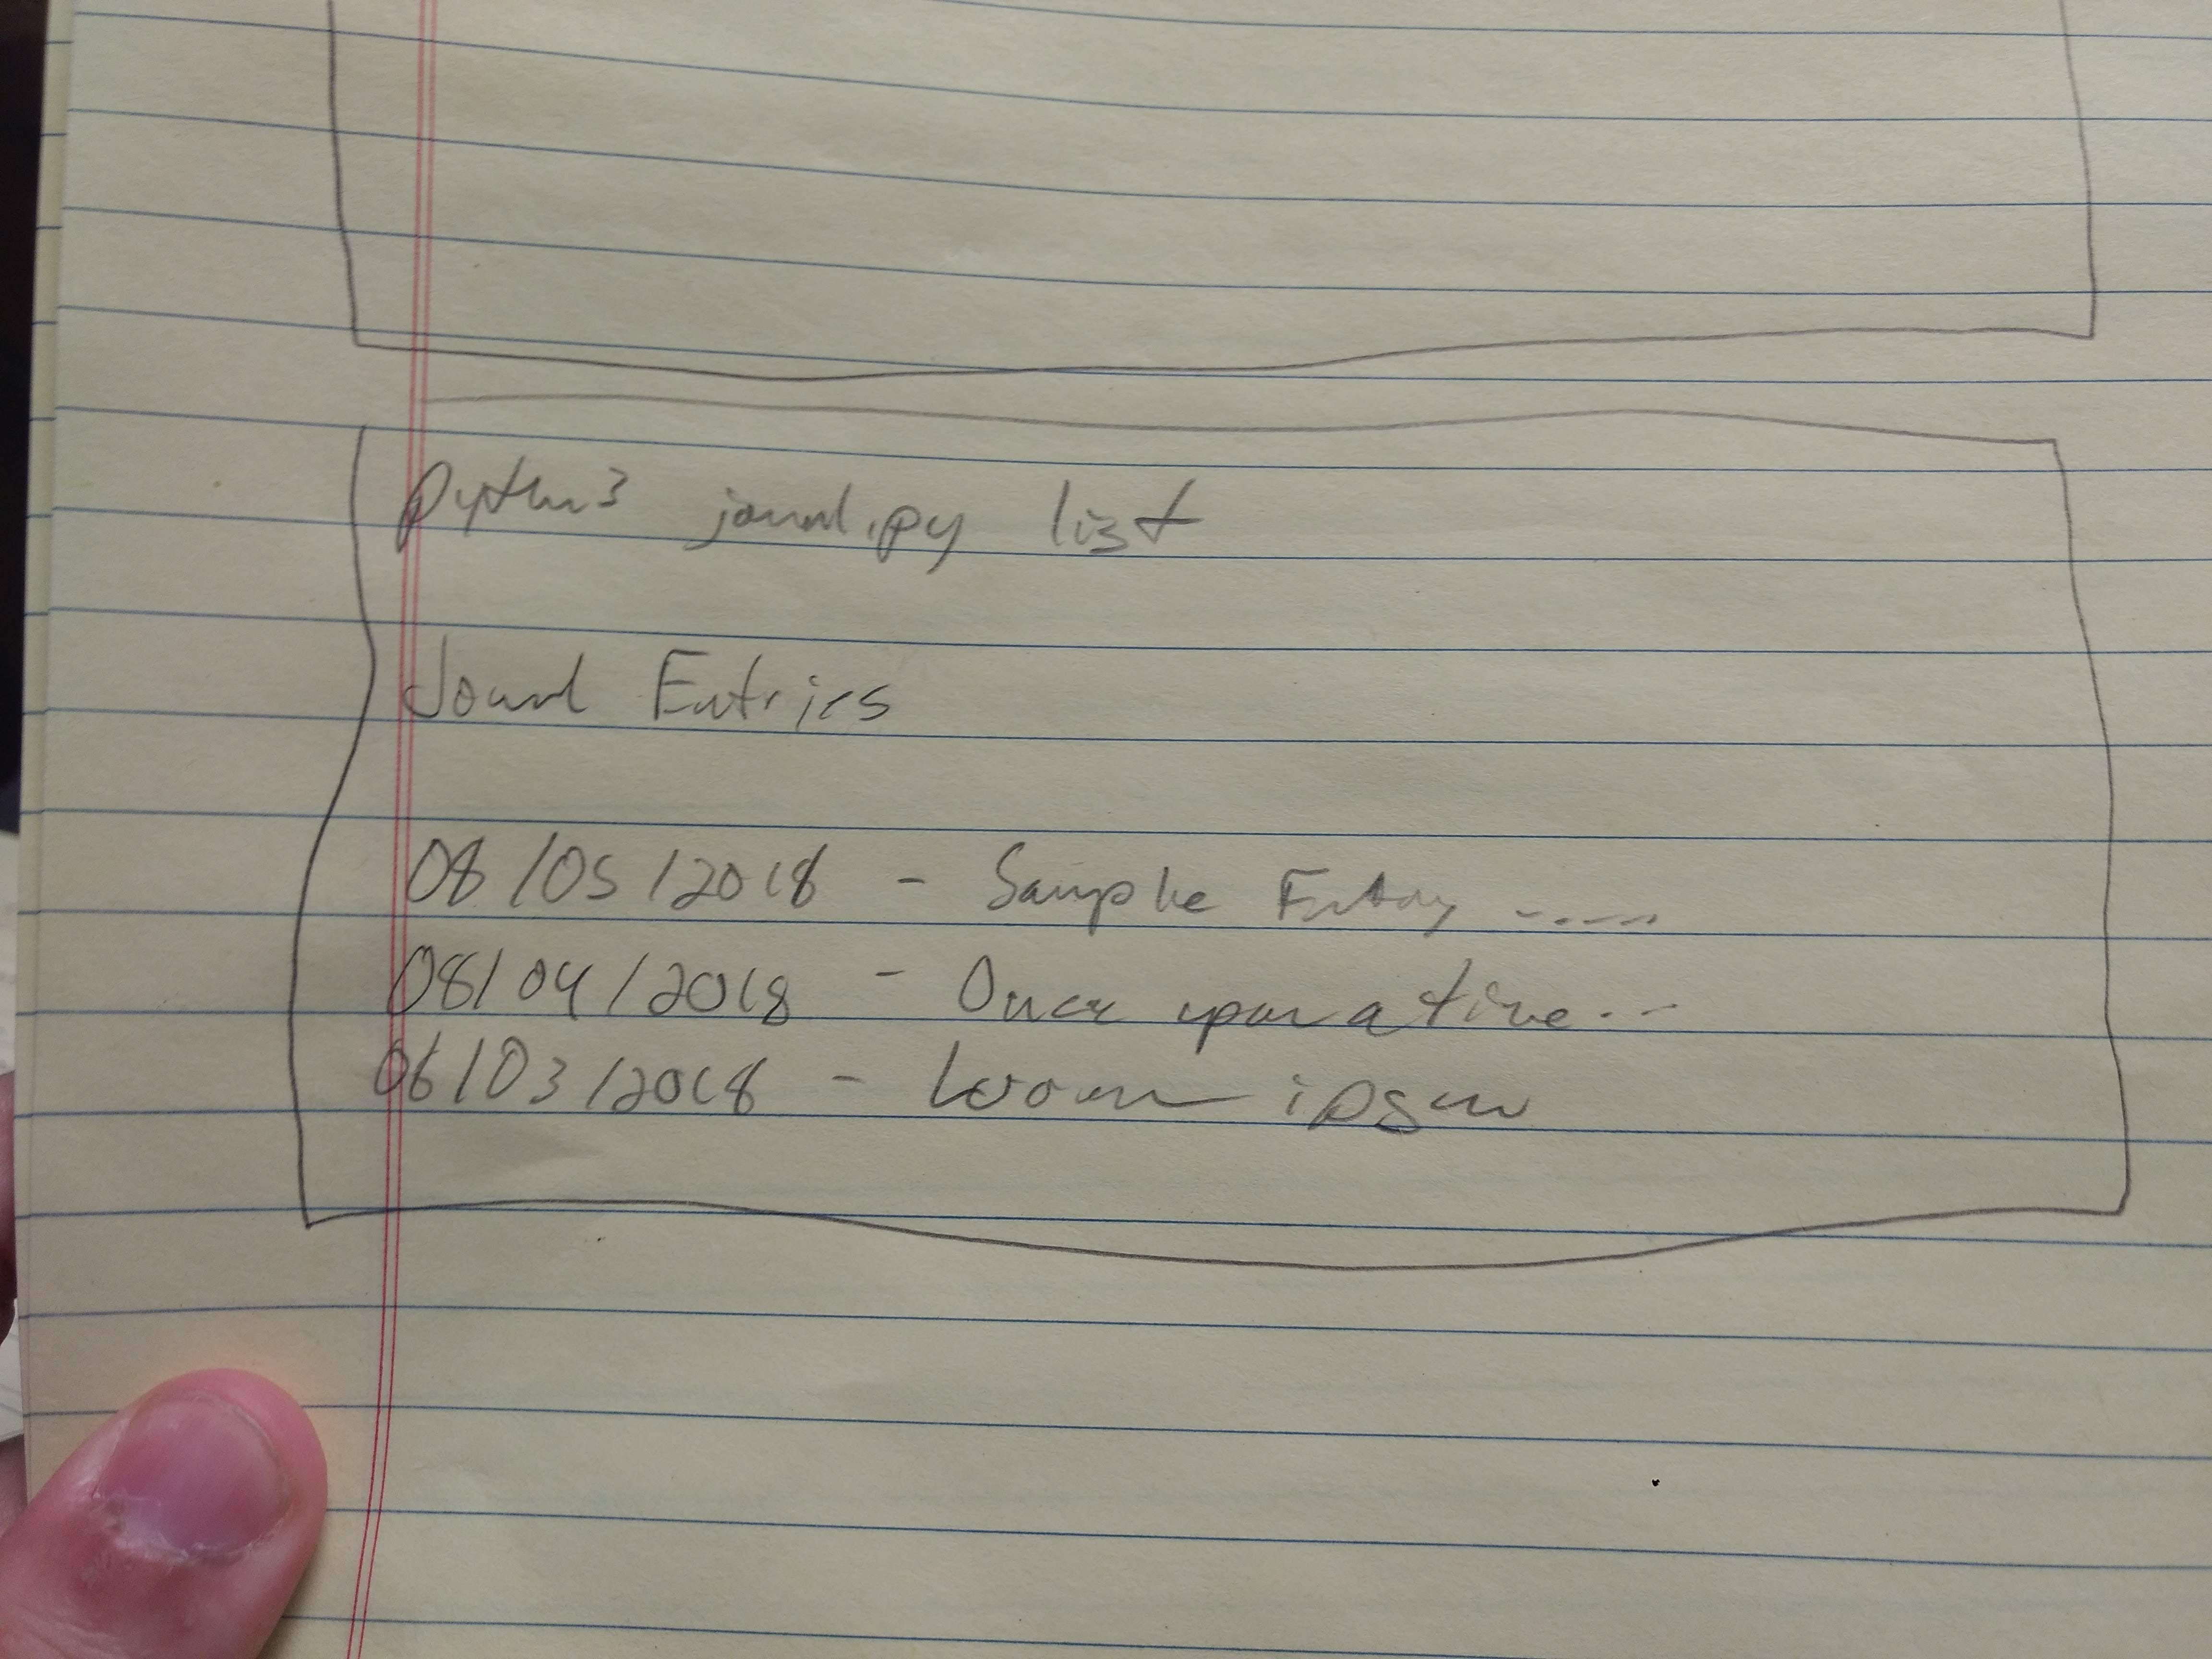 python3 journal.py list
Journal Entries
08/05/2018 - Sample Entry .....
08/04/2018 - Once upon a time...
06/03/2018 - Lorem ipsum